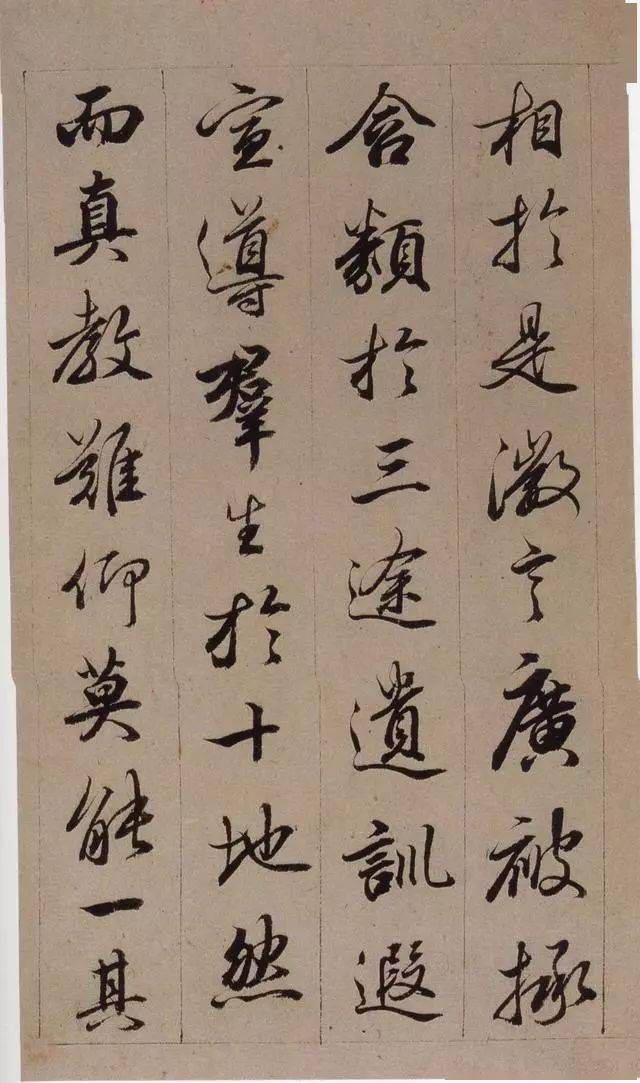 相於是微言廣被拯
含類於三途遺訓遐
宣導羣生於十地然
而真教難仰莫能一其